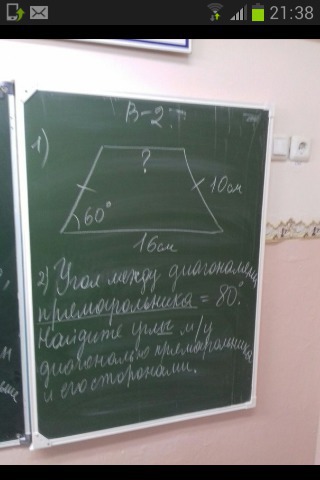 21:38
В-2
1)
?
10см
60°
16см
2) Угол между диагоналями
прямоугольника = 80°.
Найдите углы м/у
диагональю прямоугольника
и его сторонами.